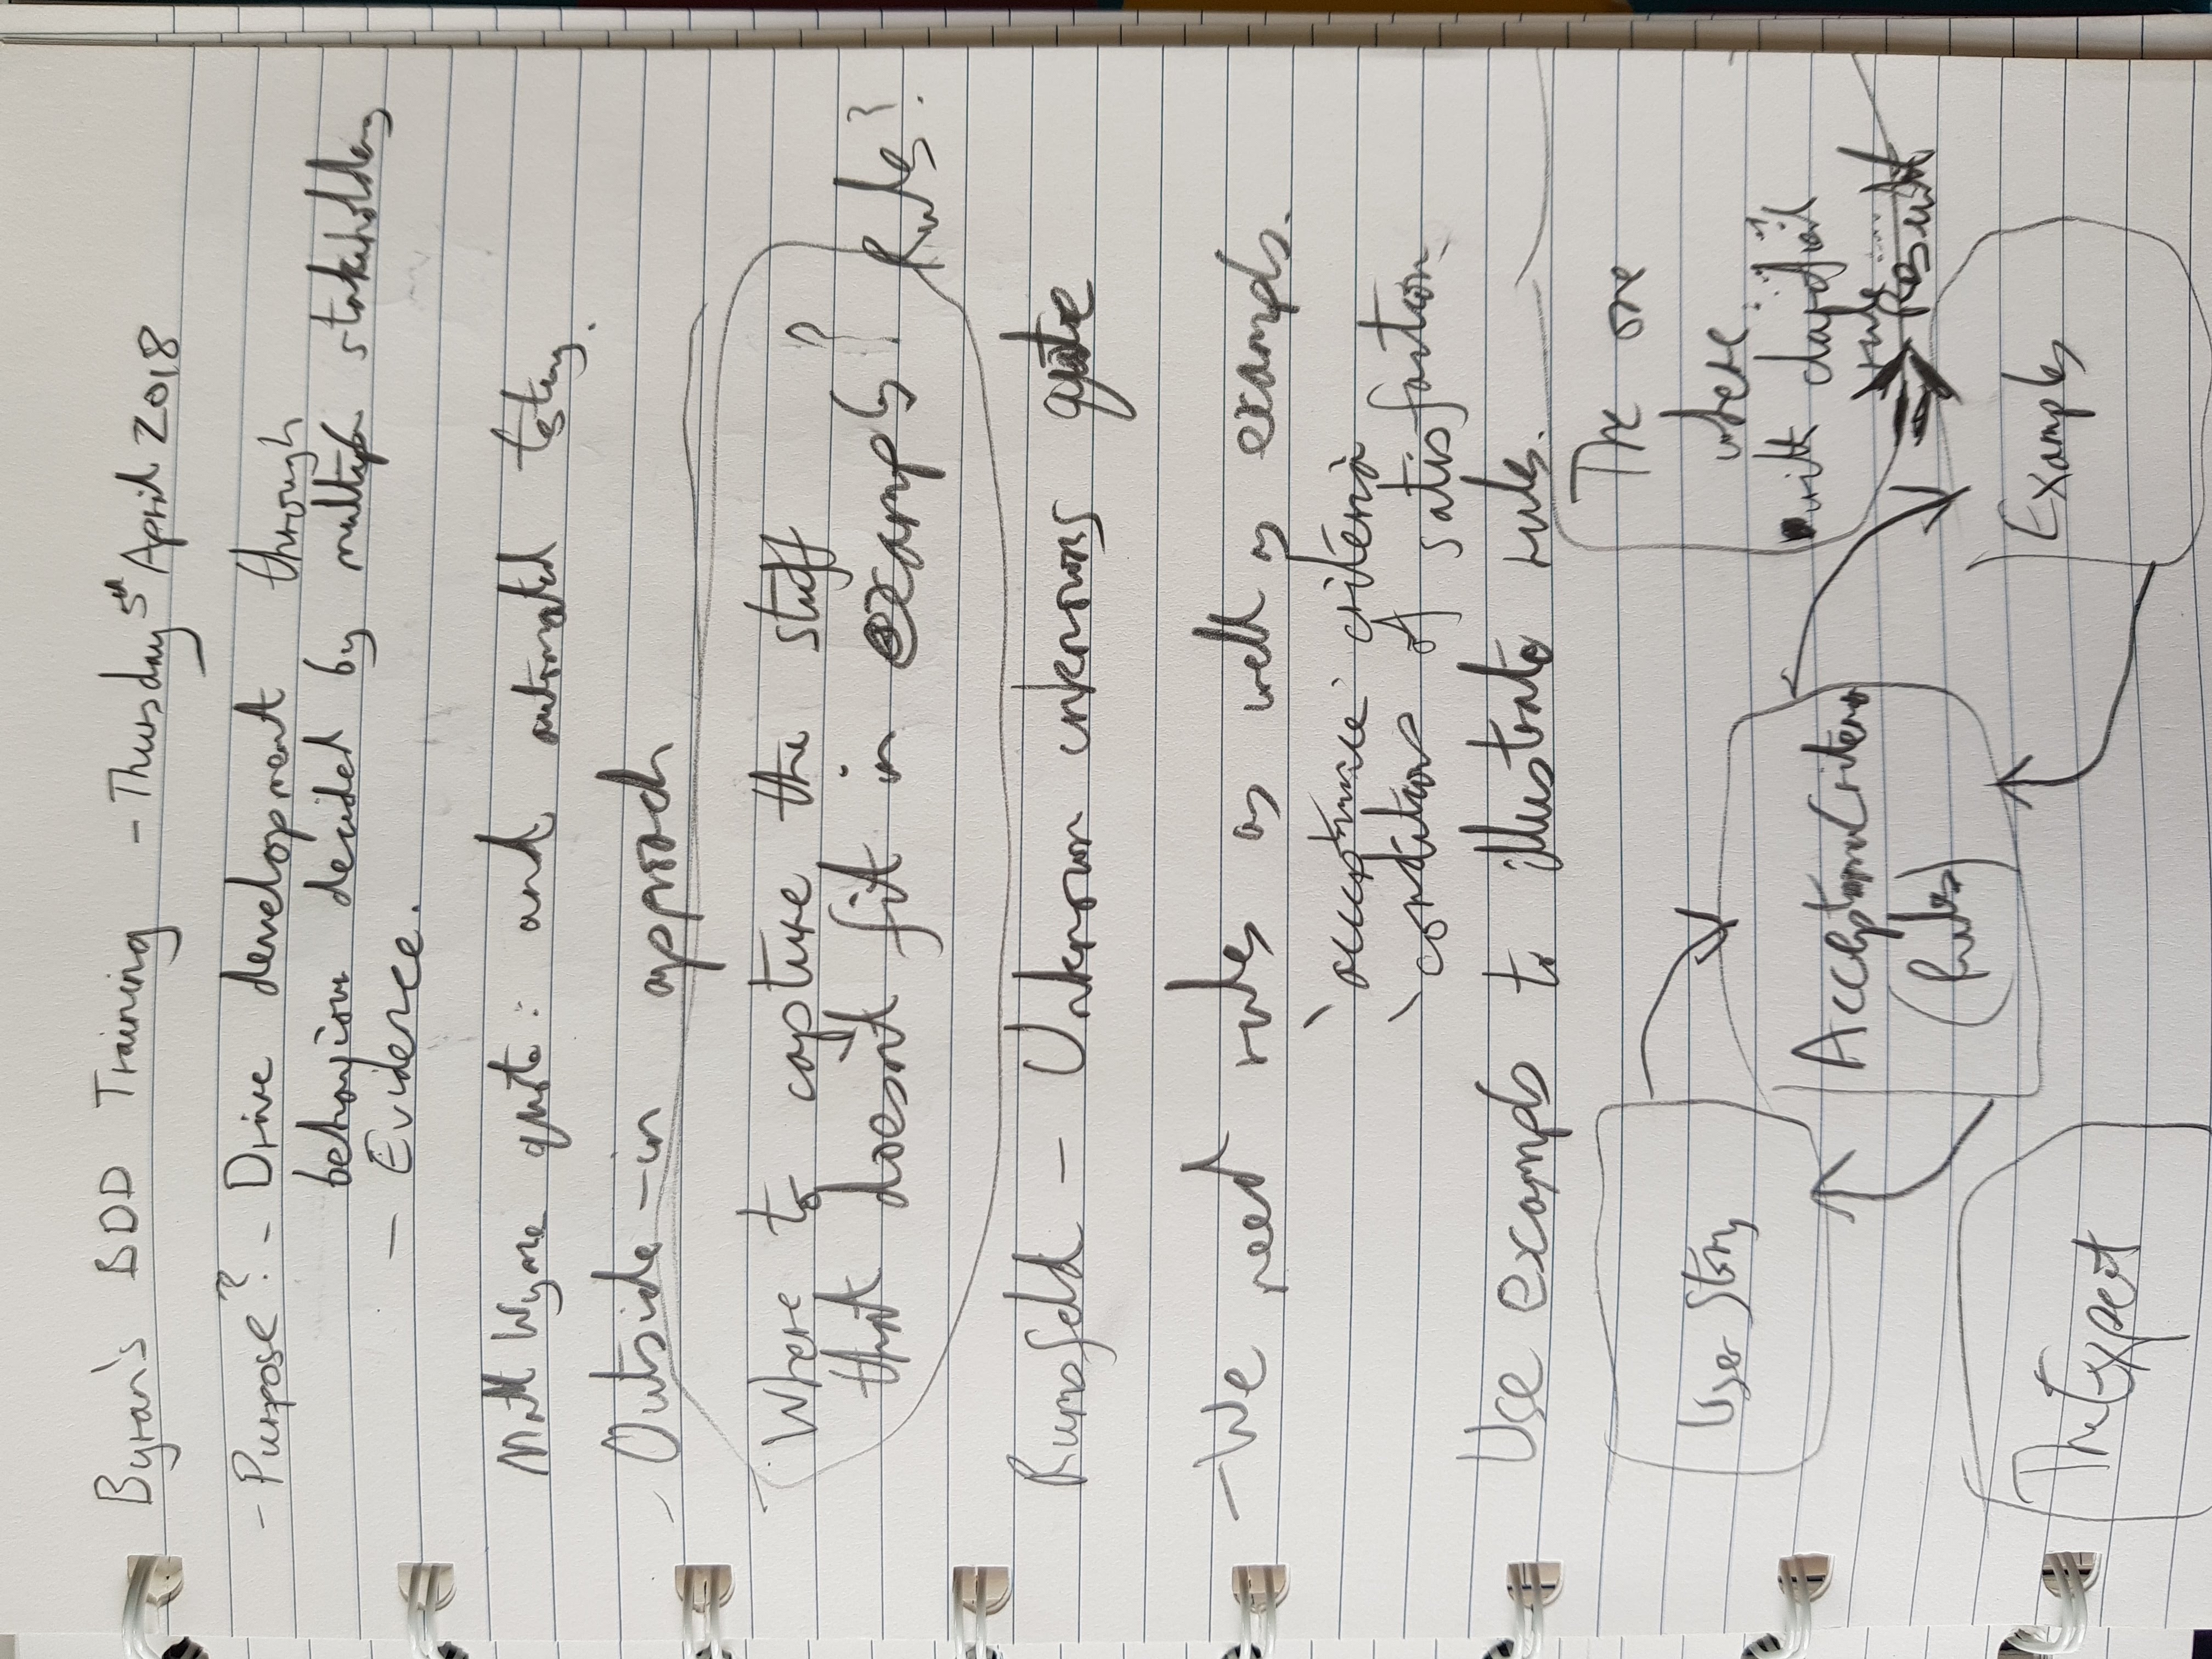 Byran's BDD Training - Thursday 5th April 2018
- Purpose? - Drive development through
behaviour decided by multiple stakeholders
- Evidence.
Matt Wynne quote: and automated testing.
- Outside-in approach
Where to capture the stuff
that doesn't fit in examples? Rules?
Rumsfeld - Unknown unknowns quote
- We need rules as well as examples.
acceptance criteria
conditions of satisfaction
Use examples to illustrate rules.
User Story
The one
where...
with
rule....
Result
Acceptance Criteria
(Rules)
Examples
The Expert